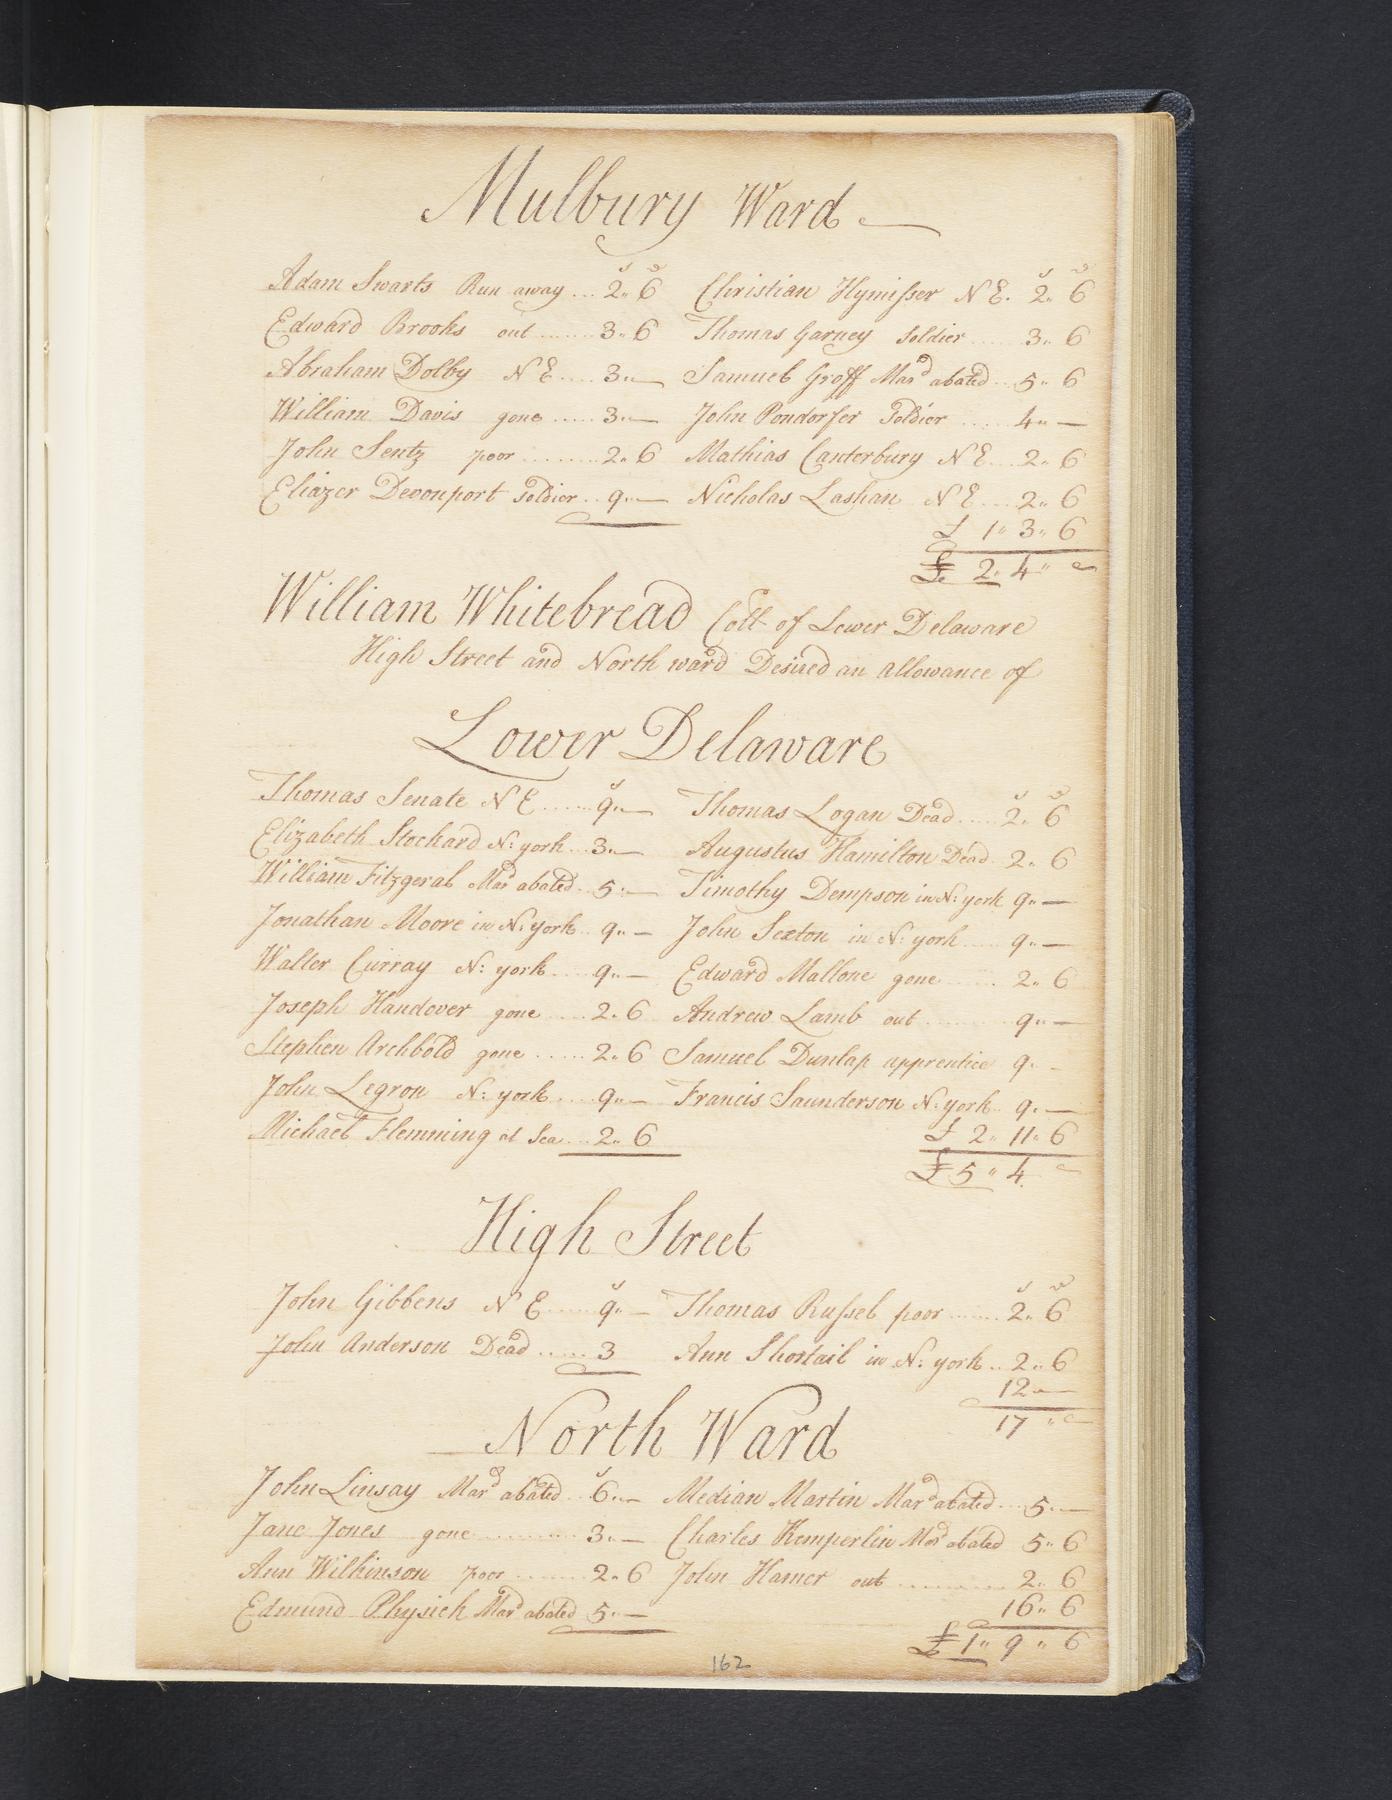 Mulbury Ward
s d s d
Adam Swarts Run away ... 2" 6 Christian Hymisser N E. 2" 6
Edward Brooks out ...... 3" 6 Thomas Garney Soldier ..... 3" 6
Abraham Dolby N E .... 3" — Samuel Groff Mard abated .. 5" 6
William Davis gone ..... 3" — John Pondorfer Soldier ...... 4" —
John Sentz poor ......... 2" 6 Mathias Canterbury N E ... 2" 6
Eliazer Devonport Soldier .. 9" — Nicholas Lashan N E .... 2" 6
£ 1" 3" 6
£ 2" 4" —
William Whitebread Collr of Lower Delaware
High Street and North ward Desired an allowance of
Lower Delaware
s s d
Thomas Senate N E ...... 9" — Thomas Logan Dead ..... 2" 6
Elizabeth Stockard N: york ... 3" — Augustus Hamilton Dead . 2" 6
William Fitzgeral Mard abated .. 5" — Timothy Dempson in N: york 9" —
Jonathan Moore in N: york .. 9" — John Sexton in N: york ..... 9" —
Walter Curray N: york .... 9" — Edward Mallone gone ....... 2" 6
Joseph Handover gone .... 2" 6 Andrew Lamb out .......... 9" —
Stephen Archbold gone ..... 2" 6 Samuel Dunlap apprentice 9" -
John Legron N: york .... 9" — Francis Saunderson N: york .. 9" —
Michael Flemming at Sea ... 2" 6 £ 2" 11" 6
£ 5" 4 —
High Street
s s d
John Gibbens N E ...... 9" — Thomas Russel poor ....... 2" 6
John Anderson Dead ..... 3 Ann Shortail in N: york .. 2" 6
12" —
17" —
North Ward
s
John Linsay Mard abated .. 6" — Median Martin Mard abated ... 5" —
Jane Jones gone .......... 3" — Charles Kemperlin Mard abated 5" 6
Ann Wilkinson poor ........ 2" 6 John Hamer out ........... 2" 6
Edmund Physick Mard abated 5" — 16" 6
£ 1" 9" 6
162